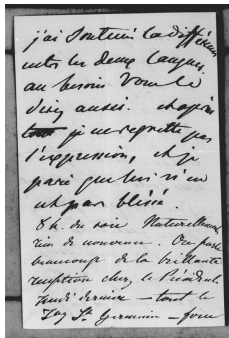 j'ai soutenu la différence
entre les deux langues.
au besoin vous le
direz aussi. et après
tout je ne regrette pas
l'expression, et je
parie que lui n'en
est pas blessé.
8 h. du soir Naturellement
rien de nouveau. On parle
beaucoup de la brillante
réception chez le Président
Jeudi dernier — tout le
Fbg St Germain —